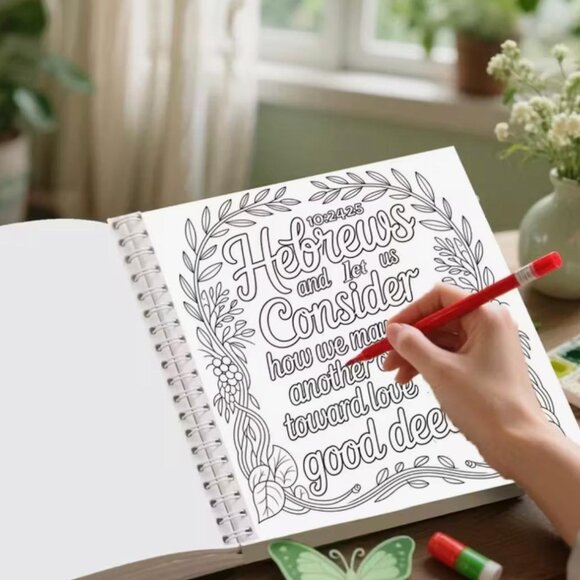 10:24,25
Hebrews
and let us
Consider
how we may
another
toward love
good deed